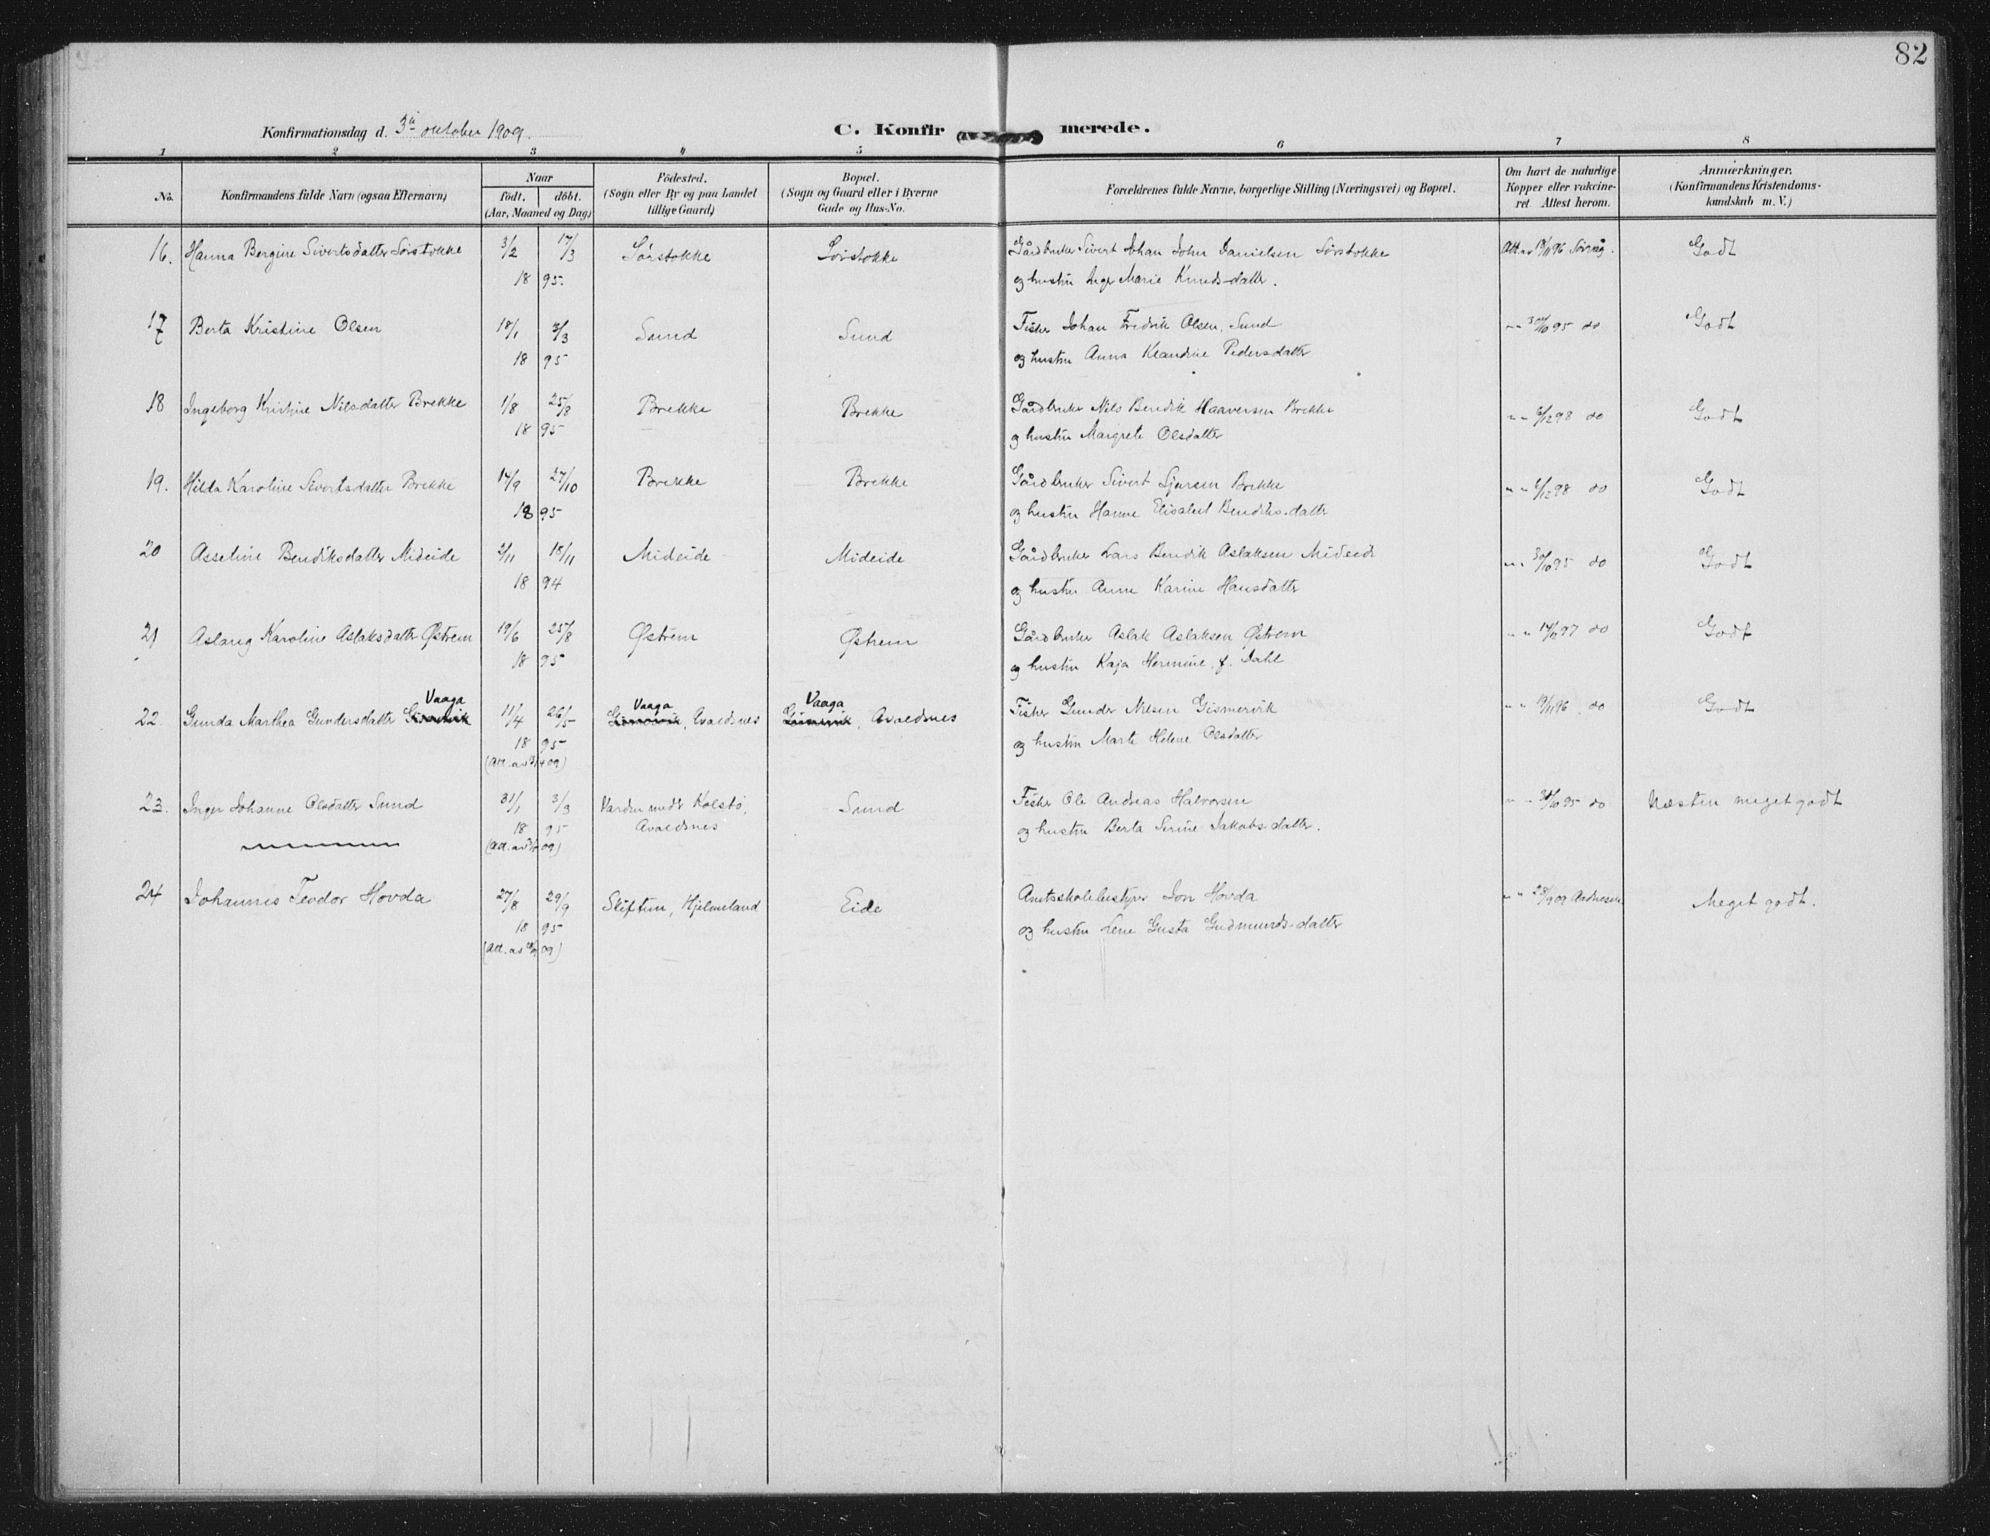 82
Konfirmationsdag d. 3die oktober 1909.
C. Konfirmerede.
1 2 3 4 5 6 7 8
No. Konfirmandens fulde Navn (ogsaa Efternavn)
Naar
født. døbt.
(Aar, Maaned og Dag)
Fødested.
(Sogn eller By og paa Landet
tillige Gaard)
Bopæl.
(Sogn og Gaard eller i Byerne
Gade og Hus-No.
Forældrenes fulde Navne, borgerlige Stilling (Næringsvei) og Bopæl.
Om havt de naturlige
Kopper eller vakcine-
ret. Attest herom.
Anmærkninger.
(Konfirmandens Kristendoms-
kundskab m. V.)
16. Hanna Bergine Sivertsdatter Sørstokke 3/2 17/3 Sørstokke Sørstokke Gårdbruker Sivert Johan John Danielsen Sørstokke Att. av Godt
18 95 og hustru Inger Marie Knudsdatter.
17 Berta Kristine Olsen 18/1 3/3 Sund Sund Fisker Johan Fredrik Olsen, Sund 95 do Godt
18 95 og hustru Anna Kandine Pedersdatter
18 Ingeborg Kristine Nilsdatter Brekke 1/8 25/8 Brekke Brekke Gårdbruker Nils Bendik Haaversen Brekke 6/12 98 do Godt
18 95 og hustru Margrete Olsdatter
19. Hilda Karoline Sivertsdatter Brekke 14/9 27/10 Brekke Brekke Gårdbruker Sivert Brekke 6/12 98 do Godt
18 95 og hustru Hanne Elisabet Bendiksdatter
20 Asseline Bendiksdatter Mideide 2/11 18/11 Mideide Mideide Gårdbruker Lars Bendik Aslaksen Mideide 30/10 95 do Godt
18 94 og hustru Anne Karine Hansdatter
21 Aslaug Karoline Aslaksdatter Østrem 19/6 25/8 Østrem Østrem Gårdbruker Aslak Aslaksen Østrem 97 do Godt
18 95 og hustru Kaja Hermine f. Dahl
Vaaga Vaaga Vaaga
22. Gunda Marthea Gundersdatter Gismervik 11/4 26/5 Gismervik, Avaldsnes Gismervik, Avaldsnes Fisker Gunder Nilsen Gismervik 96 do Godt
18 95 og hustru Marte Helene Olsdatter
(Att. av 09)
23. Inger Johanne Olsdatter Sund 31/1 3/3 Varden under Kolstø, Sund Fisker Ole Andreas Halvorsen 30/10 95 do Næsten meget godt
18 95 Avaldsnes og hustru Berta Serine Jakobsdatter.
(Att. av 09)
24 Johannes Teodor Hovda 27/8 29/9 Sliftun, Hjelmeland Eide Amtsskolebestyrer Jon Hovda Meget godt.
18 95 og hustru Lene Gusta Gudmundsdatter
(Att. av 09)